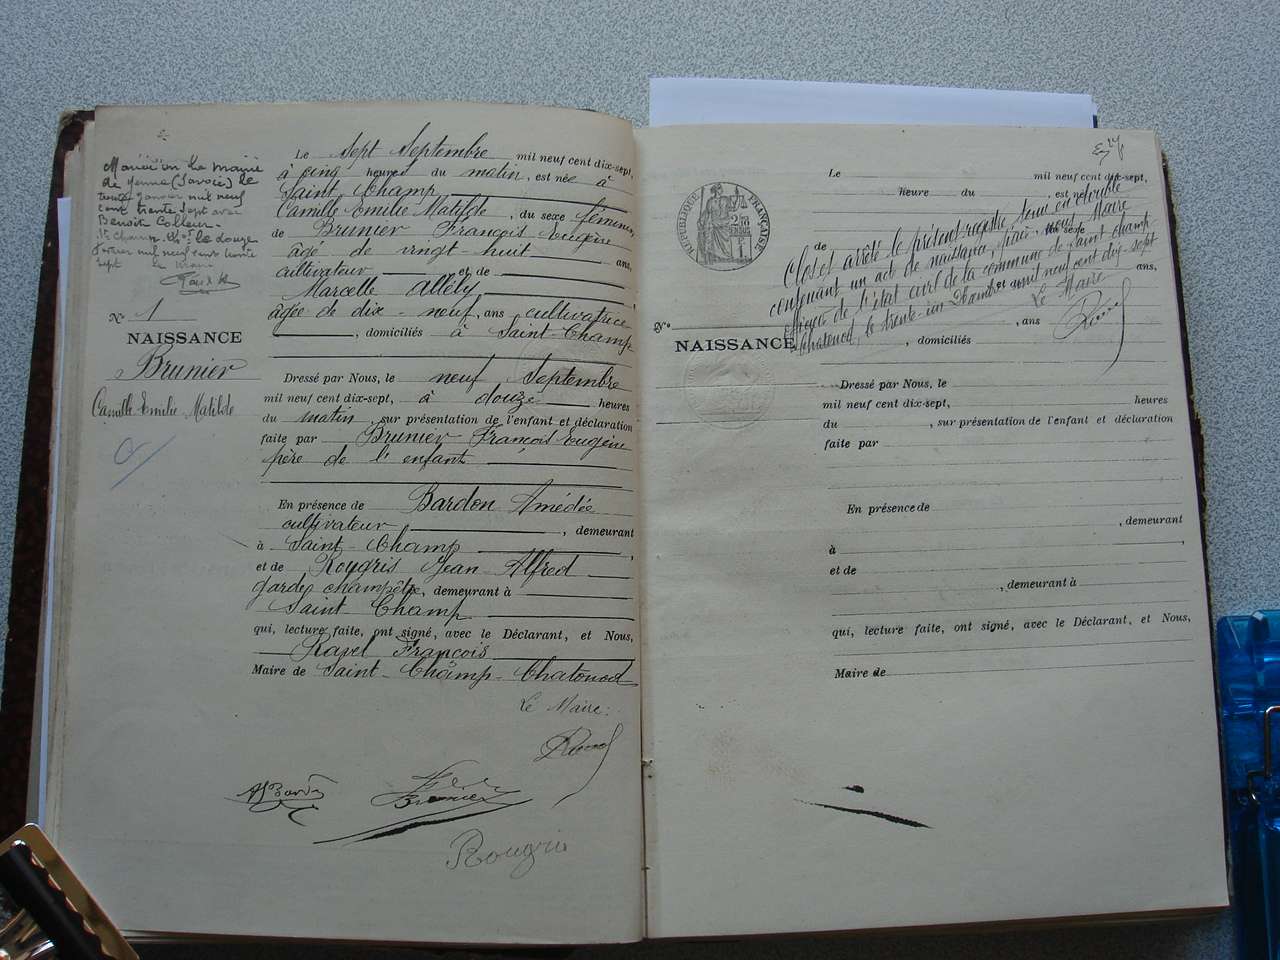 Marié en la mairie
de Yenne (Savoie) le
trente janvier mil neuf
cent trente sept avec
Benoît Colleur
St Champ Ch. le douze
février mil neuf cent trente
sept le Maire
N° 1
NAISSANCE
Brunier
Camille Emilie Matilde
Le Sept Septembre mil neuf cent dix-sept,
à cinq heures du matin, est née à
Saint Champ
Camille Emilie Matilde, du sexe féminin,
de Brunier François Eugène
âgé de vingt-huit ans,
cultivateur et de
Marcelle Allély
âgée de dix-neuf, ans cultivatrice
, domiciliés à Saint-Champ
Dressé par Nous, le neuf Septembre
mil neuf cent dix-sept, à douze heures
du matin, sur présentation de l'enfant et déclaration
faite par Brunier François Eugène
père de l'enfant
En présence de Bardon Amédée
cultivateur, demeurant
à Saint-Champ,
et de Rougris Jean Alfred
garde champêtre, demeurant à
Saint Champ
qui, lecture faite, ont signé, avec le Déclarant, et Nous,
Ravel François
Maire de Saint-Champ-Chatonod
Le Maire:
Ravel
A Bardon
Brunier
Rougris
Le mil neuf cent dix-sept,
heure du , est né
RÉPUBLIQUE FRANÇAISE
de du sexe
Clos et arrêté le présent registre tenu en double
contenant un acte de naissance, par nous, Maire
officier de l'état civil de la commune de Saint Champ
Chatonod, le trente-un Décembre mil neuf cent dix-sept
Le Maire
Ravel
ans,
, ans
N°
NAISSANCE
, domiciliés
Dressé par Nous, le
mil neuf cent dix-sept, heures
du , sur présentation de l'enfant et déclaration
faite par
En présence de
, demeurant
à ,
et de
, demeurant à
qui, lecture faite, ont signé, avec le Déclarant, et Nous,
Maire de